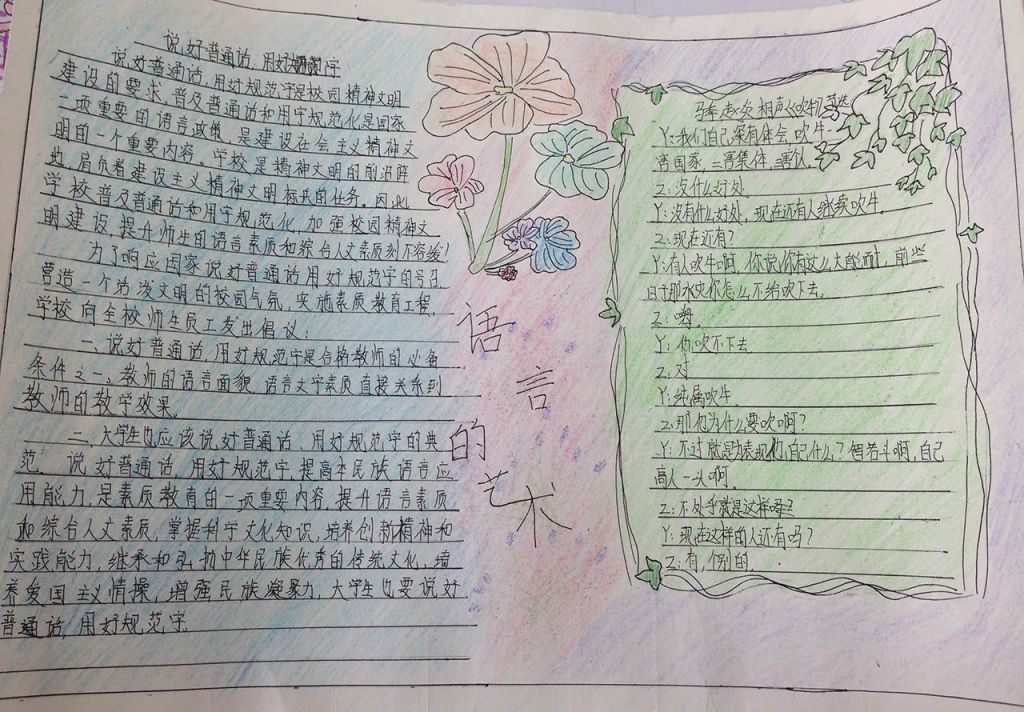 说好普通话,用好规范字
说好普通话,用好规范字是校园精神文明
建设的要求,普及普通话和用字规范化是国家
一项重要的语言政策,是建设社会主义精神文
明的一个重要内容。学校是精神文明的前沿阵
地,肩负着建设主义精神文明标兵的任务。因此
学校普及普通话和用字规范化,加强校园精神文
明建设,提升师生的语言素质和综合人文素质刻不容缓!
为了响应国家说好普通话,用好规范字的号召
营造一个活泼文明的校园气氛,实施素质教育工程,
学校向全校师生员工发出倡议:
一、说好普通话,用好规范字是合格教师的必备
条件之一、教师的语言面貌,语言文字素质直接关系到
教师的教学效果。
二、大学生也应该说好普通话,用好规范字的典
范。说好普通话,用好规范字,提高本民族语言应
用能力,是素质教育的一项重要内容,提升语言素质
和综合人文素质,掌握科学文化知识,培养创新精神和
实践能力,继承和弘扬中华民族优秀的传统文化,培
养爱国主义情操,增强民族凝聚力,大学生也要说好
普通话,用好规范字
语言的艺术
相声《吹牛》
Y:我们自己深有体会,吹牛一
害国家,二害集体
Z:没什么好处
Y:没有什么好处,现在还有人继续吹牛。
Z:现在还有?
Y:有人吹牛啊,你说你有这么大能耐,前些
日子那水灾你怎么不给吹下去。
Z:嗯
Y:你吹不下去
Z:对
Y:纯属吹牛
Z:那他为什么要吹啊?
Y:不过就是为表现他自己什么?智若斗啊,自己
高人一头啊。
Z:不外乎就是这样吗?
Y:现在这样的人还有吗?
Z:有,个别的